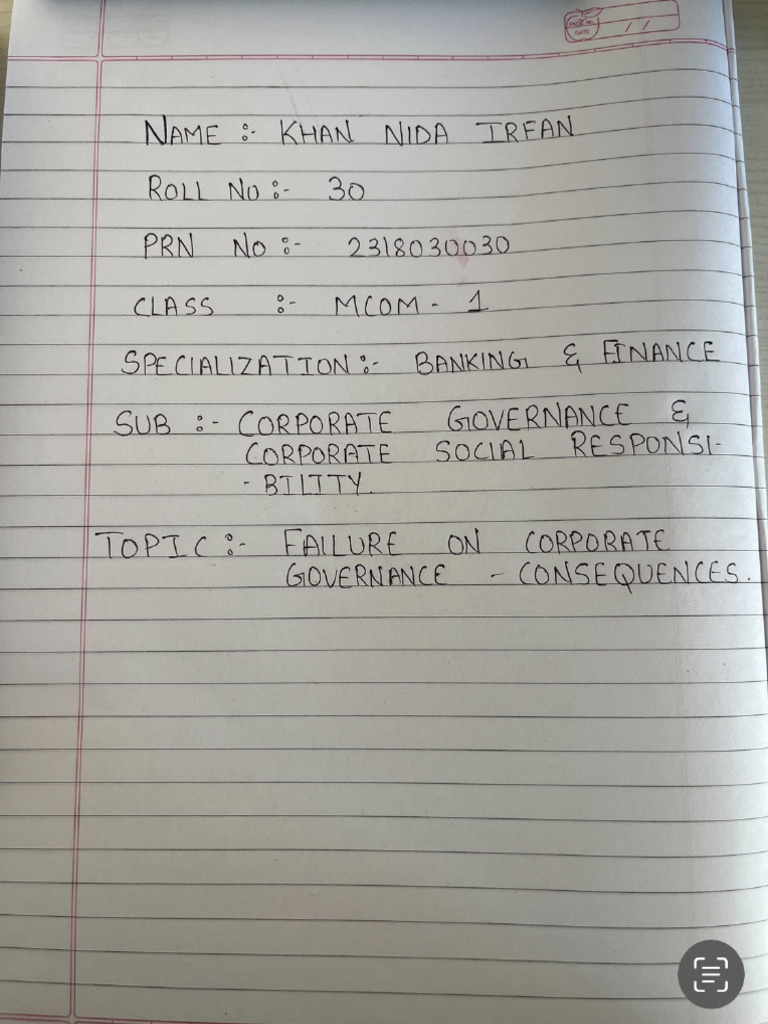 PAGE No.
DATE / /
NAME :- KHAN NIDA IRFAN
ROLL No :- 30
PRN No :- 2318030030
CLASS :- MCOM - 1
SPECIALIZATION :- BANKING & FINANCE
SUB :- CORPORATE GOVERNANCE &
CORPORATE SOCIAL RESPONSI-
- BILITY.
TOPIC :- FAILURE ON CORPORATE
GOVERNANCE - CONSEQUENCES.